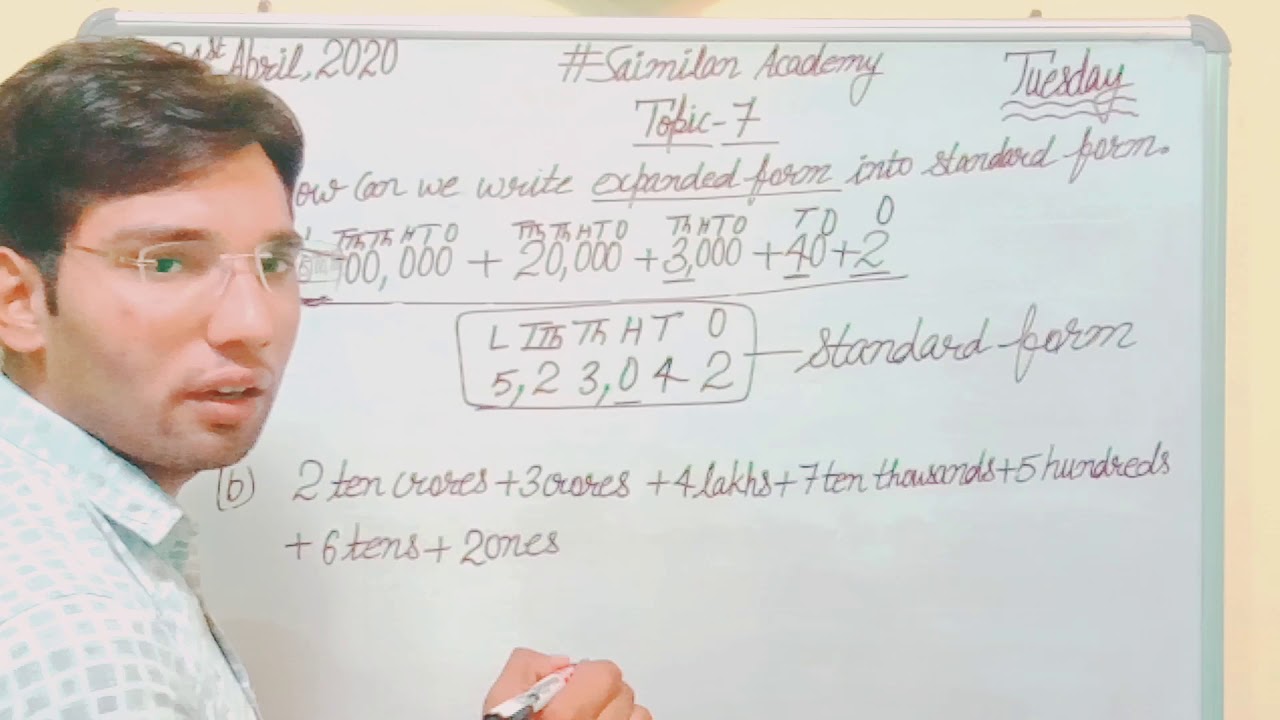 st Abril, 2020 #Saimilan Academy Tuesday
Topic-7
ow can we write expanded form into standard form.
TTh Th H T O TTh Th H T O Th H T O T O O
00,000 + 20,000 + 3,000 + 40 + 2
L TTh Th H T O
5,2 3,0 4 2 — Standard form
(b) 2 ten crores + 3 crores + 4 lakhs + 7 ten thousands + 5 hundreds
+ 6 tens + 2 ones